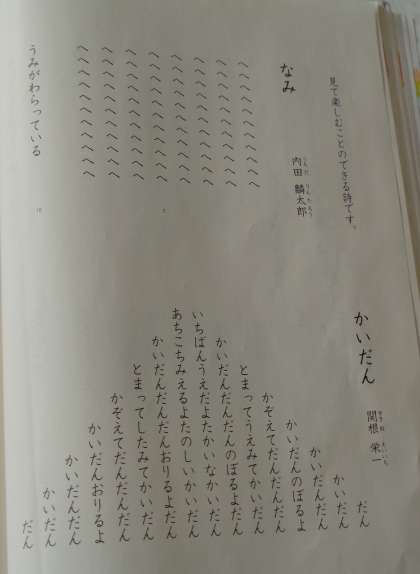 見て楽しむことのできる詩です。
なみ
内田 麟太郎
へへへへへへへへへへへ
へへへへへへへへへへへ
へへへへへへへへへへへ
へへへへへへへへへへへ
へへへへへへへへへへへ
へへへへへへへへへへへ
へへへへへへへへへへへ
へへへへへへへへへへへ
うみがわらっている
かいだん
関根 栄一
だん
かいだん
かいだんだん
かいだんのぼるよ
かぞえてだんだんだん
とまってうえみてかいだん
かいだんだんだんのぼるよだん
いちばんうえだよたかいなかいだん
あちこちみえるよたのしいかいだん
かいだんだんだんおりるよだん
とまってしたみてかいだん
かぞえてだんだんだん
かいだんおりるよ
かいだんだん
かいだん
だん